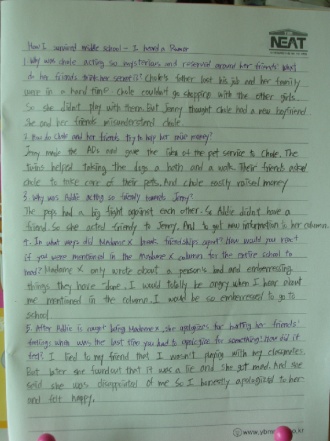 NEAT
How I survived middle school - I heard a Rumor
1. Why was Chloe acting so mysterious and reserved around her friends? What
do her friends think her secret is? Chole's father lost his job and her family
were in a hard time. Chole couldn't go shopping with the other girls.
So she didn't play with them. But Jenny thought Chole had a new boyfriend
She and her friends misunderstood chole
2. How do Chole and her friends try to help her raise money?
Jenny made the ADs and gave the idea of the pet service to Chole. The
third helped taking the dogs a bath and a walk. Their friends asked
chole to take care of their pets. And chole easily raised money
3. Why was Addie acting so friendly towards Jenny?
The pops had a big fight against each other. So Addie didn't have a
friend. So she acted friendly to Jenny. And to get new information to her column.
4. In what ways did Madame X break friendships apart? How would you react
if you were mentioned in the Madame X column for the entire school to
read? Madame X only wrote about a person's bad and emberressing
things they have done. I would totally be angry when I hear about
me mentioned in the column. I would be so emberressed to go to
school
5. After Addie is caught being Madame X, she apologizes for hurting her friends'
feelings. When was the last time you had to apologize for something? How did it
feel? I lied to my friend that I wasn't playing with my classmates.
But later she found out that it was a lie and she got mad. And she
said she was disappointed of me. So I honestly apologized to her
and felt happy.